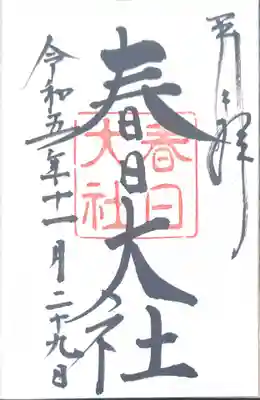 奉拝
春日大社
春日
大社
令和五年十一月二十九日